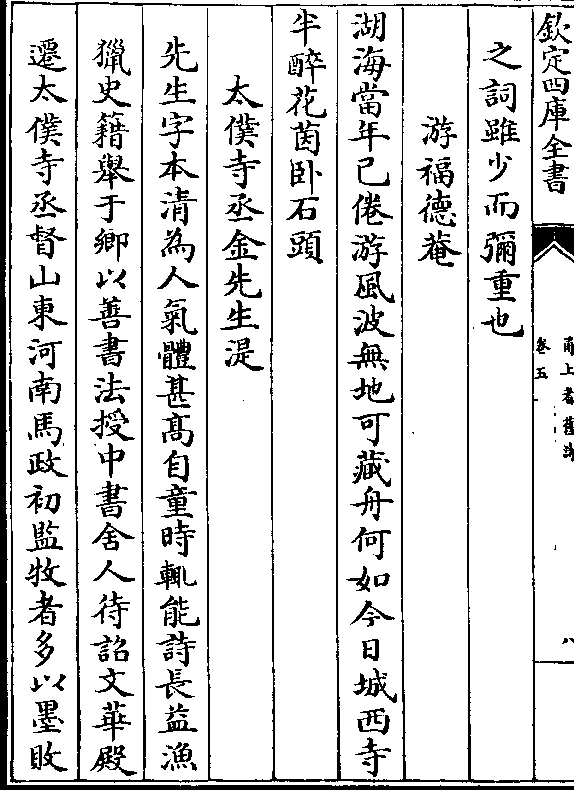 欽定四庫全書
甬上耆舊詩
卷五
八
之詞雖少而彌重也
游福德菴
湖海當年已倦游風波無地可藏舟何如今日城西寺
半醉花茵卧石頭
太僕寺丞金先生湜
先生字本清為人氣體甚髙自童時輒能詩長益漁
獵史籍舉于鄉以善書法授中書舍人待詔文華殿
遷太僕寺丞督山東河南馬政初監牧者多以墨敗